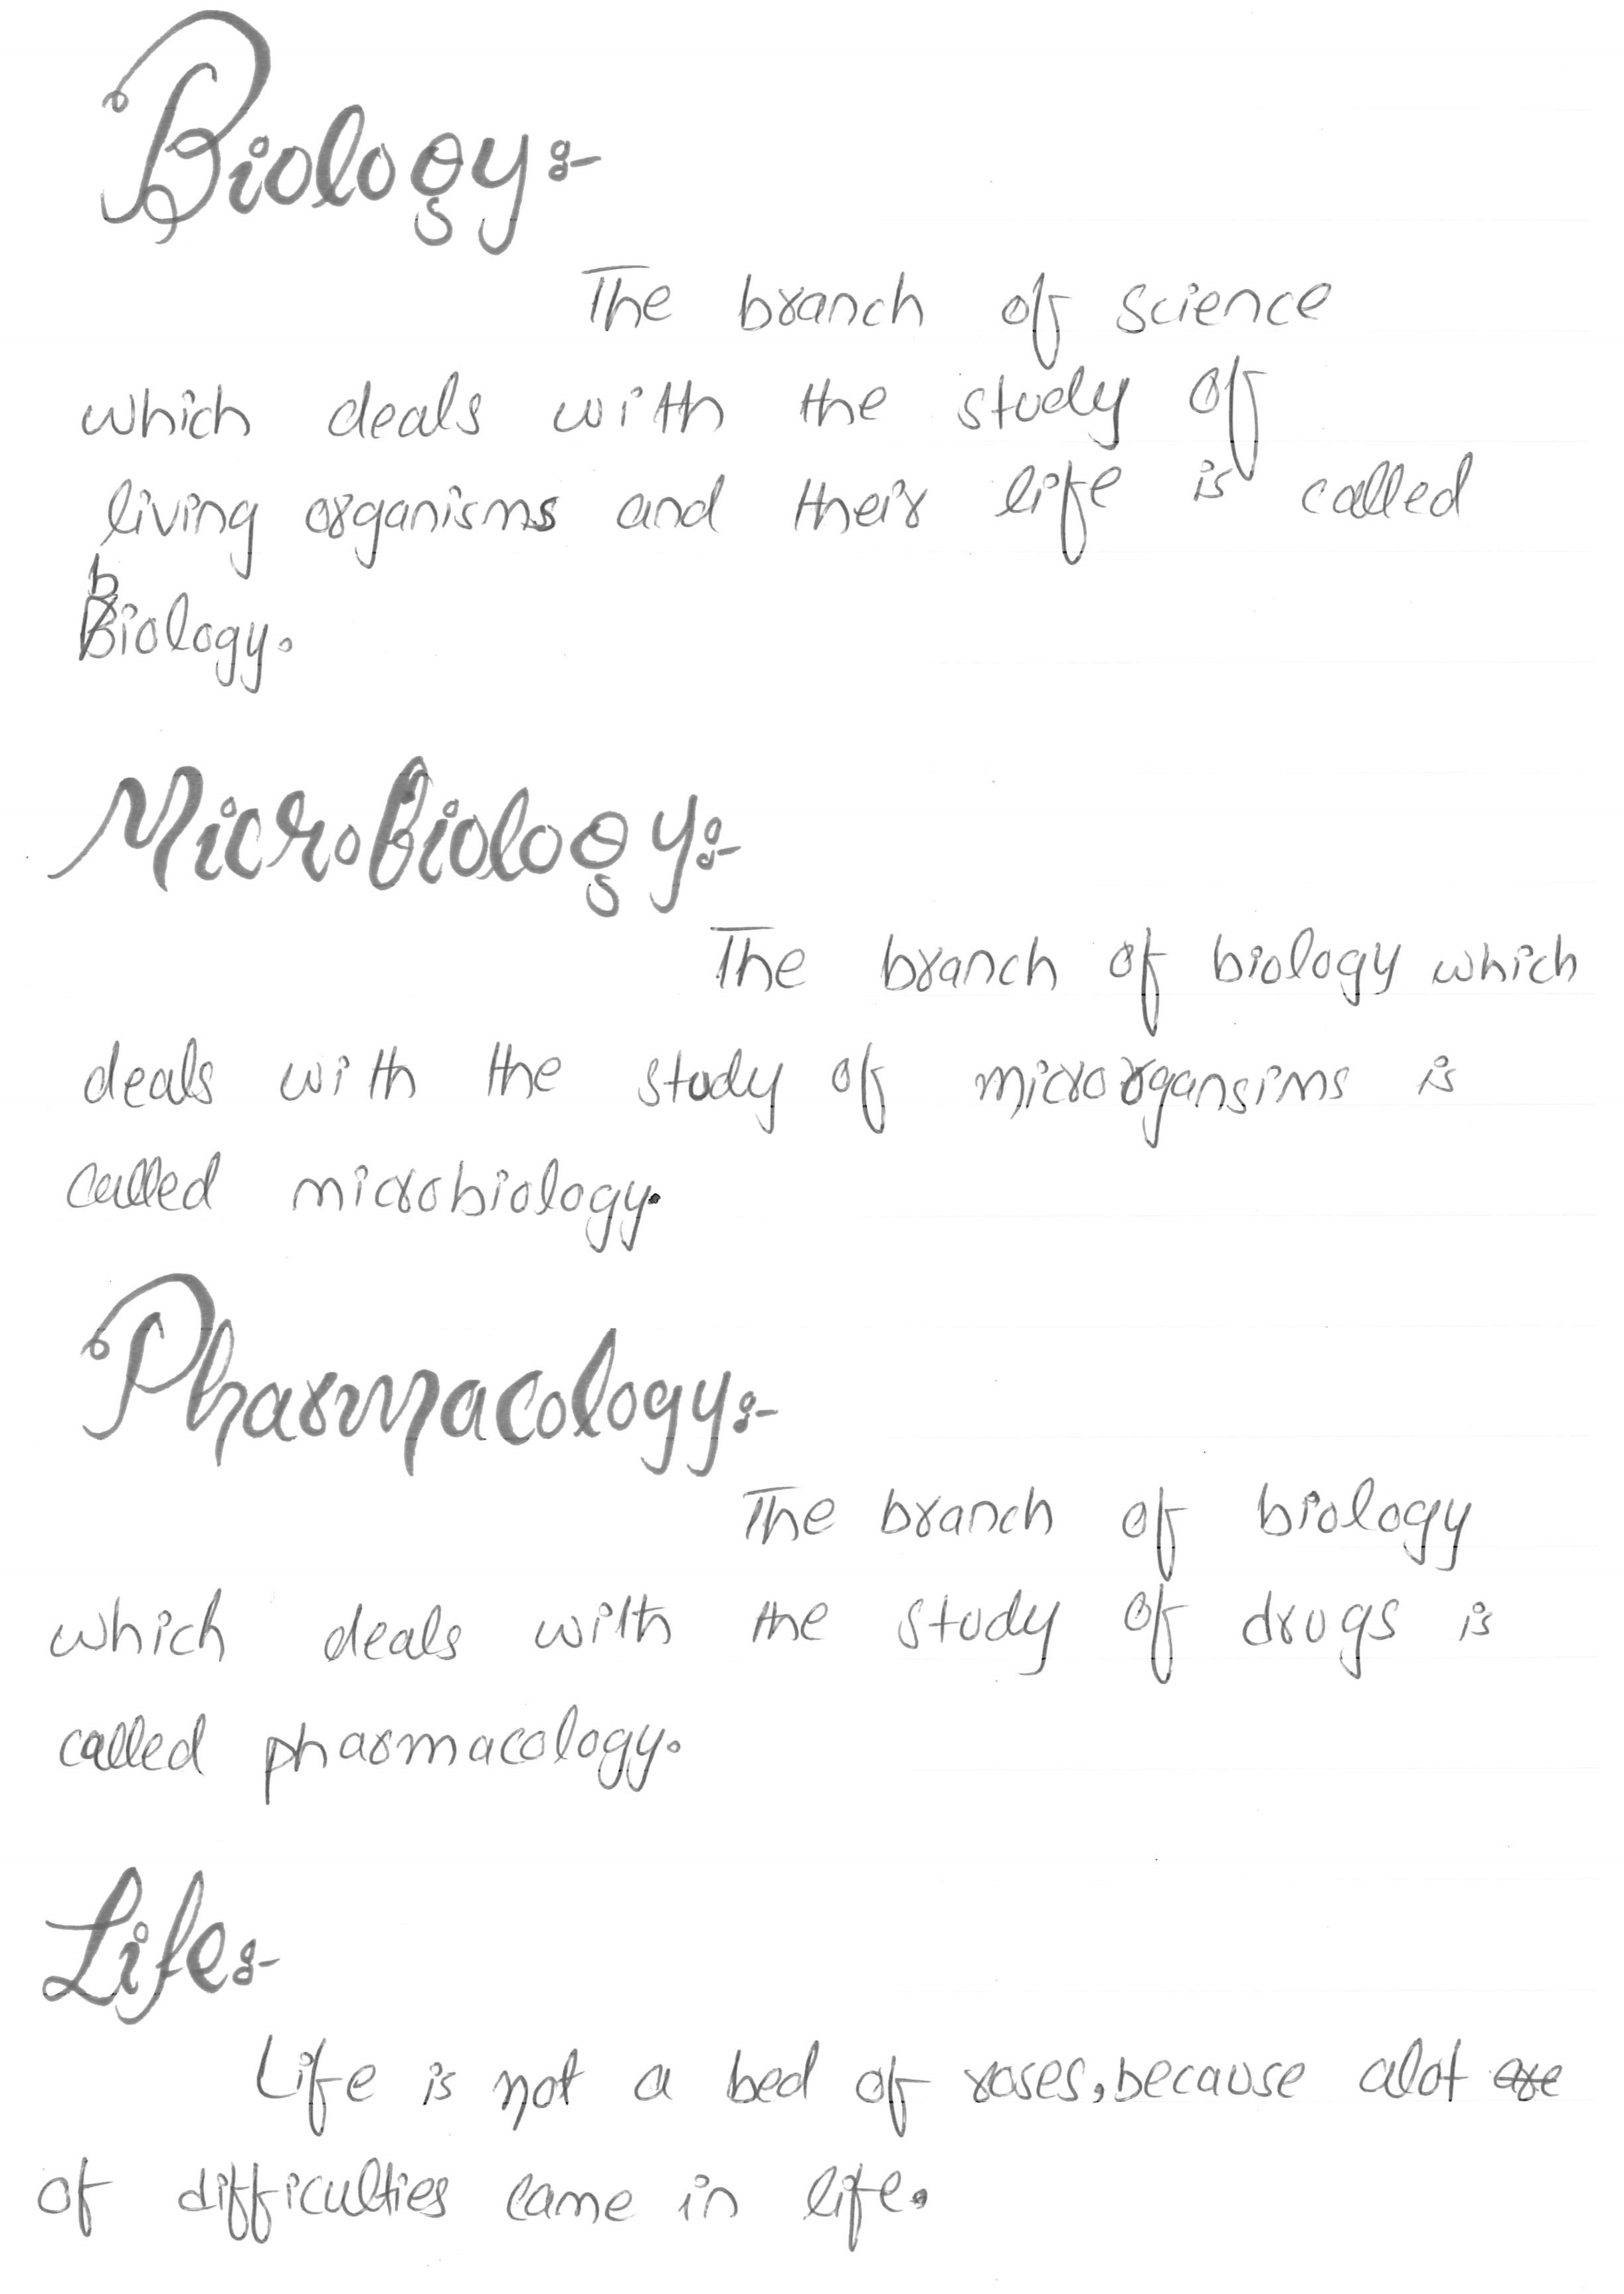 Biology:-
The branch of science
which deals with the study of
living organisms and their life is called
biology.
Microbiology:-
The branch of biology which
deals with the study of microorgansims is
called microbiology.
Pharmacology:-
The branch of biology
which deals with the study of drugs is
called pharmacology.
Life:-
Life is not a bed of roses, because alot are
of difficulties came in life.